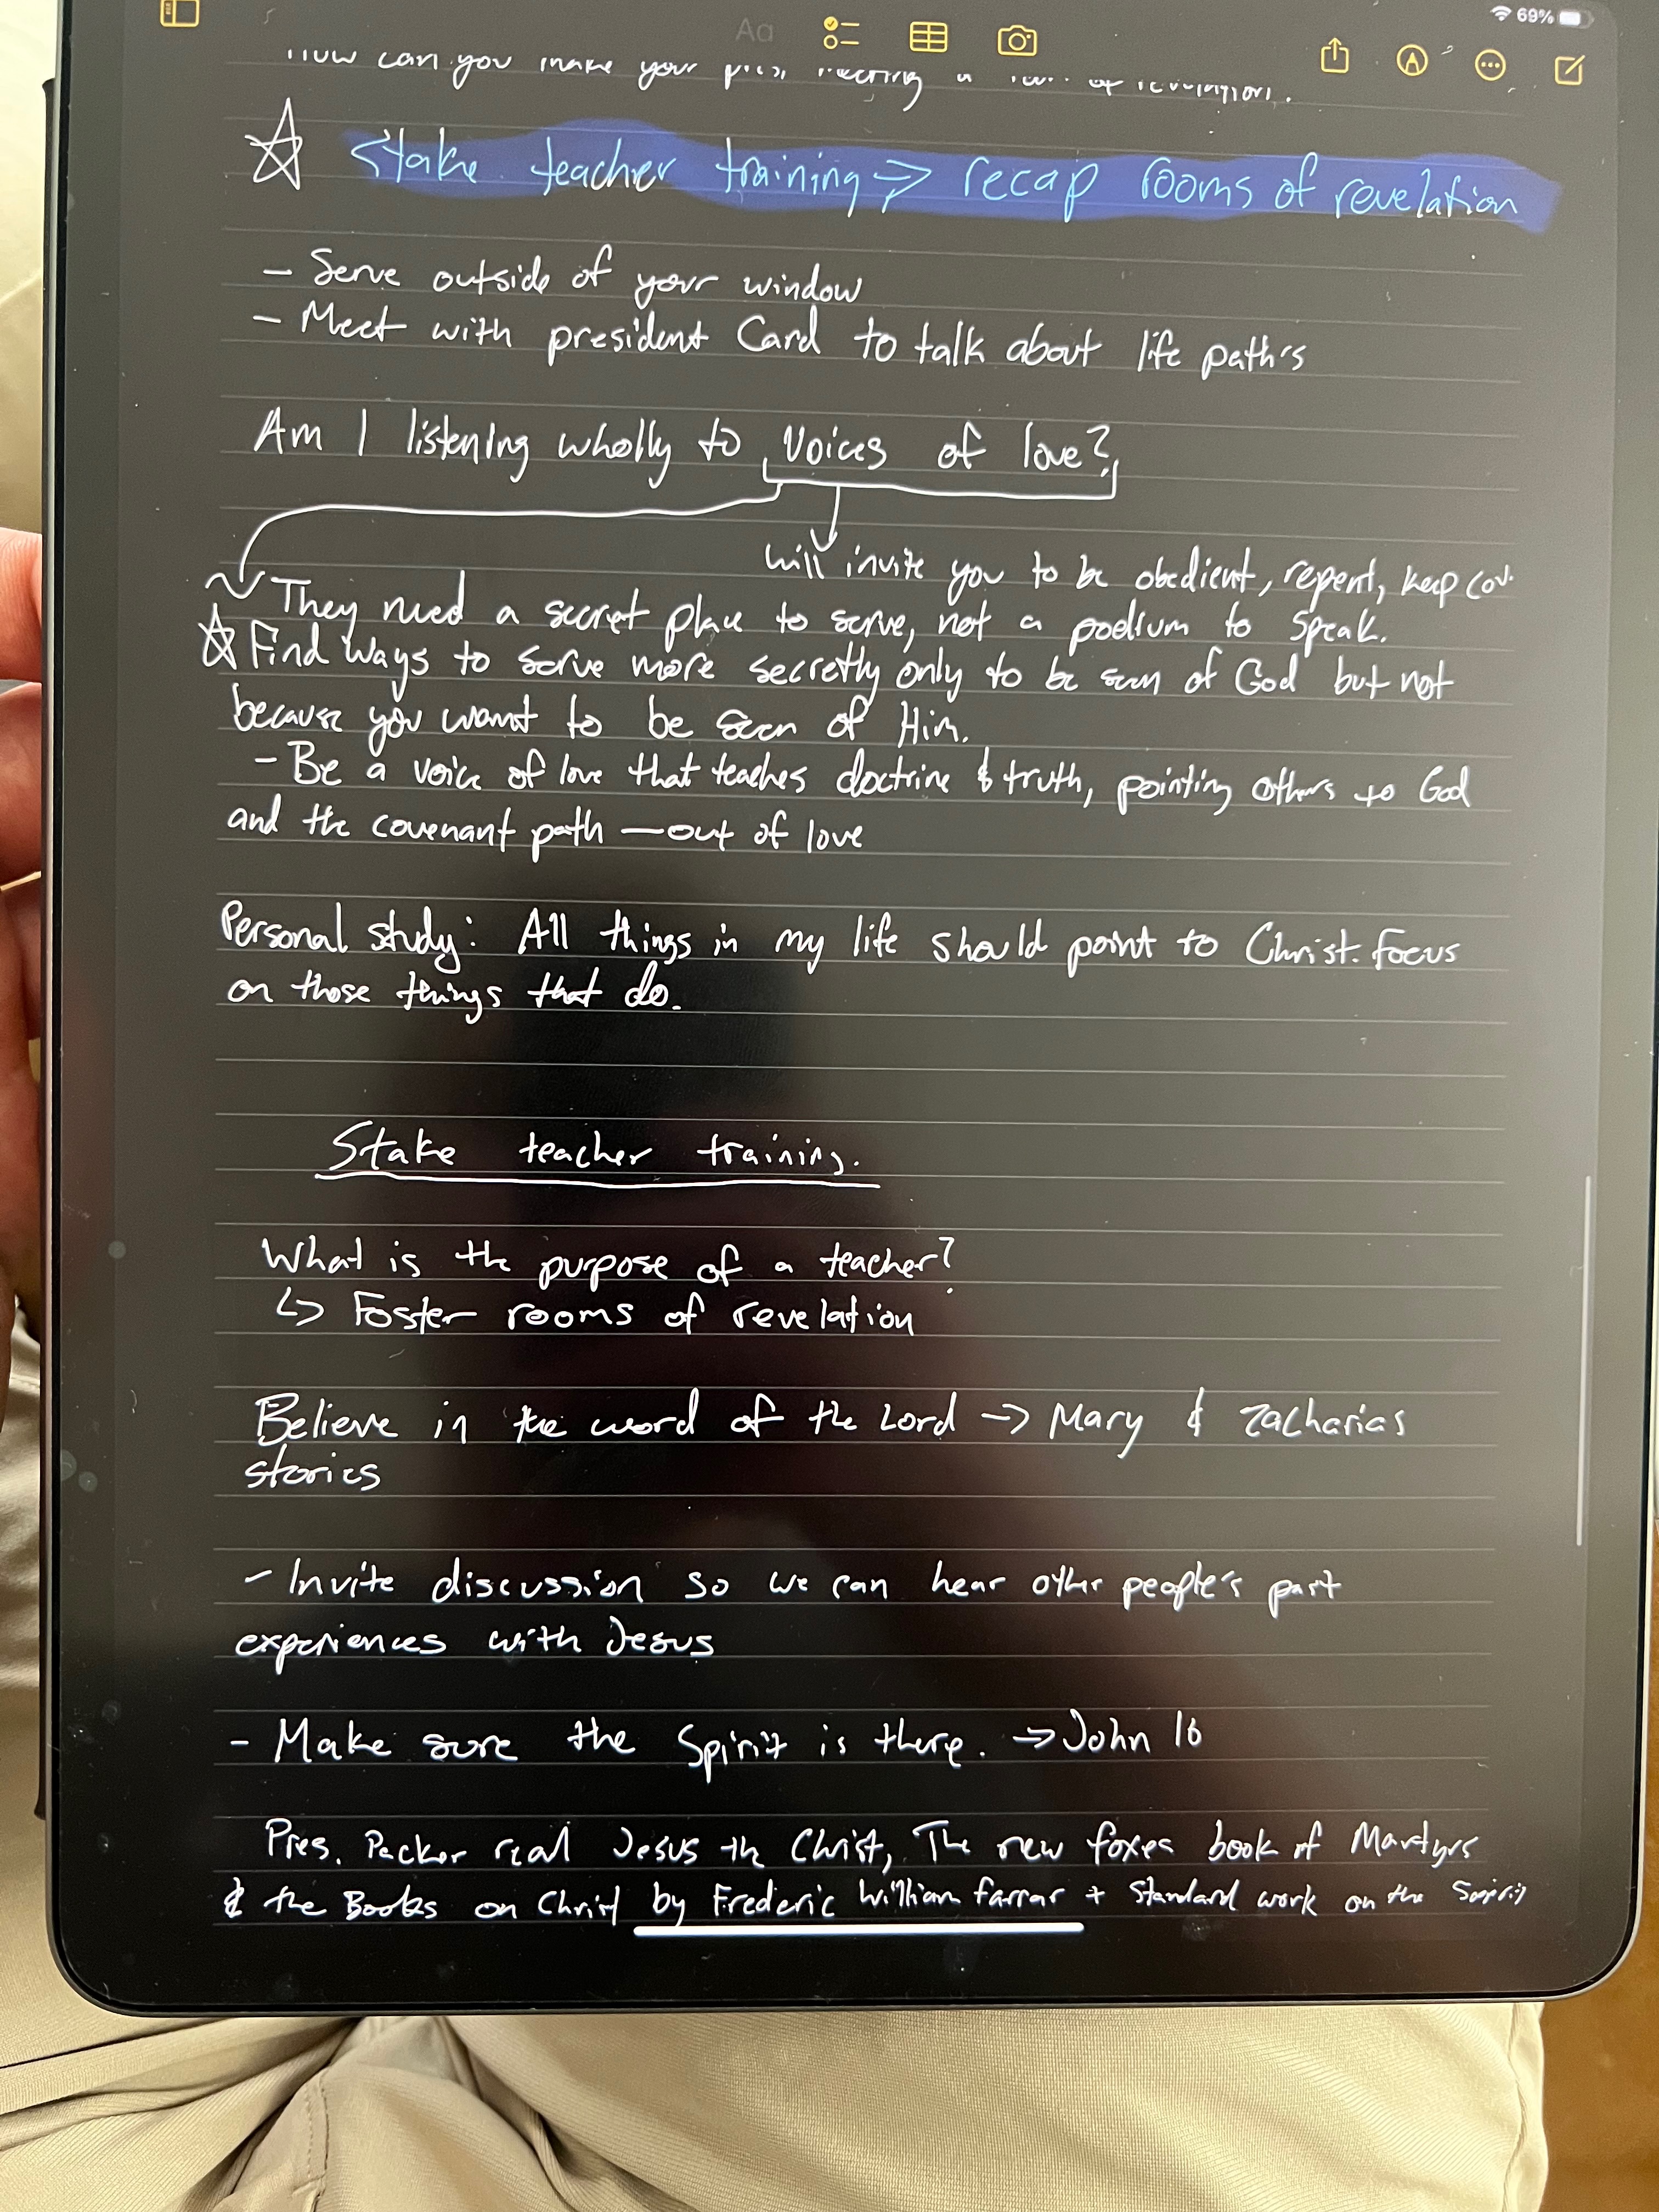 Aa
69%
How can you make your meeting a of revelation.
Stake teacher training → recap rooms of revelation
- Serve outside of your window
- Meet with president Card to talk about life path's
Am I listening wholly to voices of love?
will invite you to be obedient, repent, keep cov.
They need a secret place to serve, not a podium to speak.
☆ Find ways to serve more secretly only to be seen of God but not
because you want to be seen of Him.
- Be a voice of love that teaches doctrine & truth, pointing others to God
and the covenant path — out of love
Personal study: All things in my life should point to Christ. Focus
on those things that do.
Stake teacher training.
What is the purpose of a teacher?
↳ Foster rooms of revelation
Believe in the word of the Lord → Mary & Zacharias
stories
- Invite discussion so we can hear other people's part
experiences with Jesus
- Make sure the Spirit is there. → John 16
Pres. Packer read Jesus the Christ, The new foxes book of Martyrs
& the Books on Christ by Frederic William farrar + Standard work on the Spirit